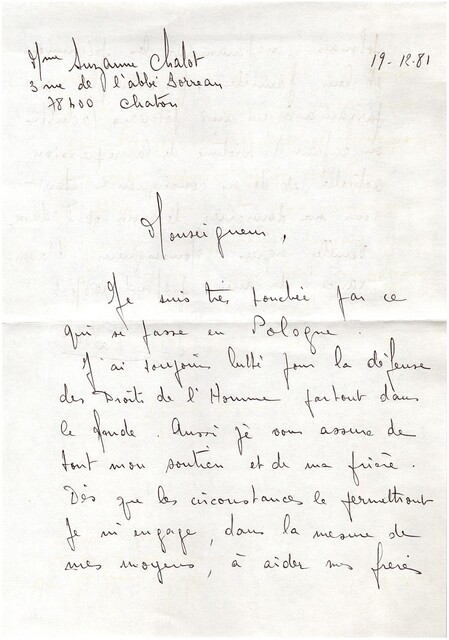 Mme Suzanne Chalot
19-12.81
3 rue de l'abbé Borreau
78400 Chatou
Monseigneur,
Je suis très touchée par ce
qui se passe en Pologne.
J'ai toujours lutté pour la défense
des Droits de l'Homme partout dans
le Monde. Aussi je vous assure de
tout mon soutien et de ma prière.
Dès que les circonstances le permettront
je m'engage, dans la mesure de
mes moyens, à aider nos frères